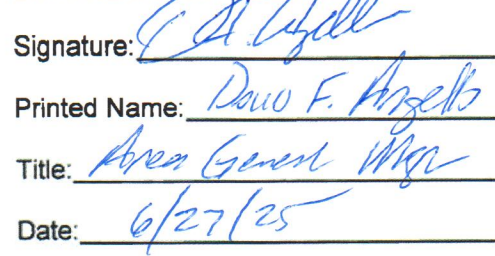 Signature:
Printed Name: David F. Angello
Title: Area General Mgr
Date: 6/27/25